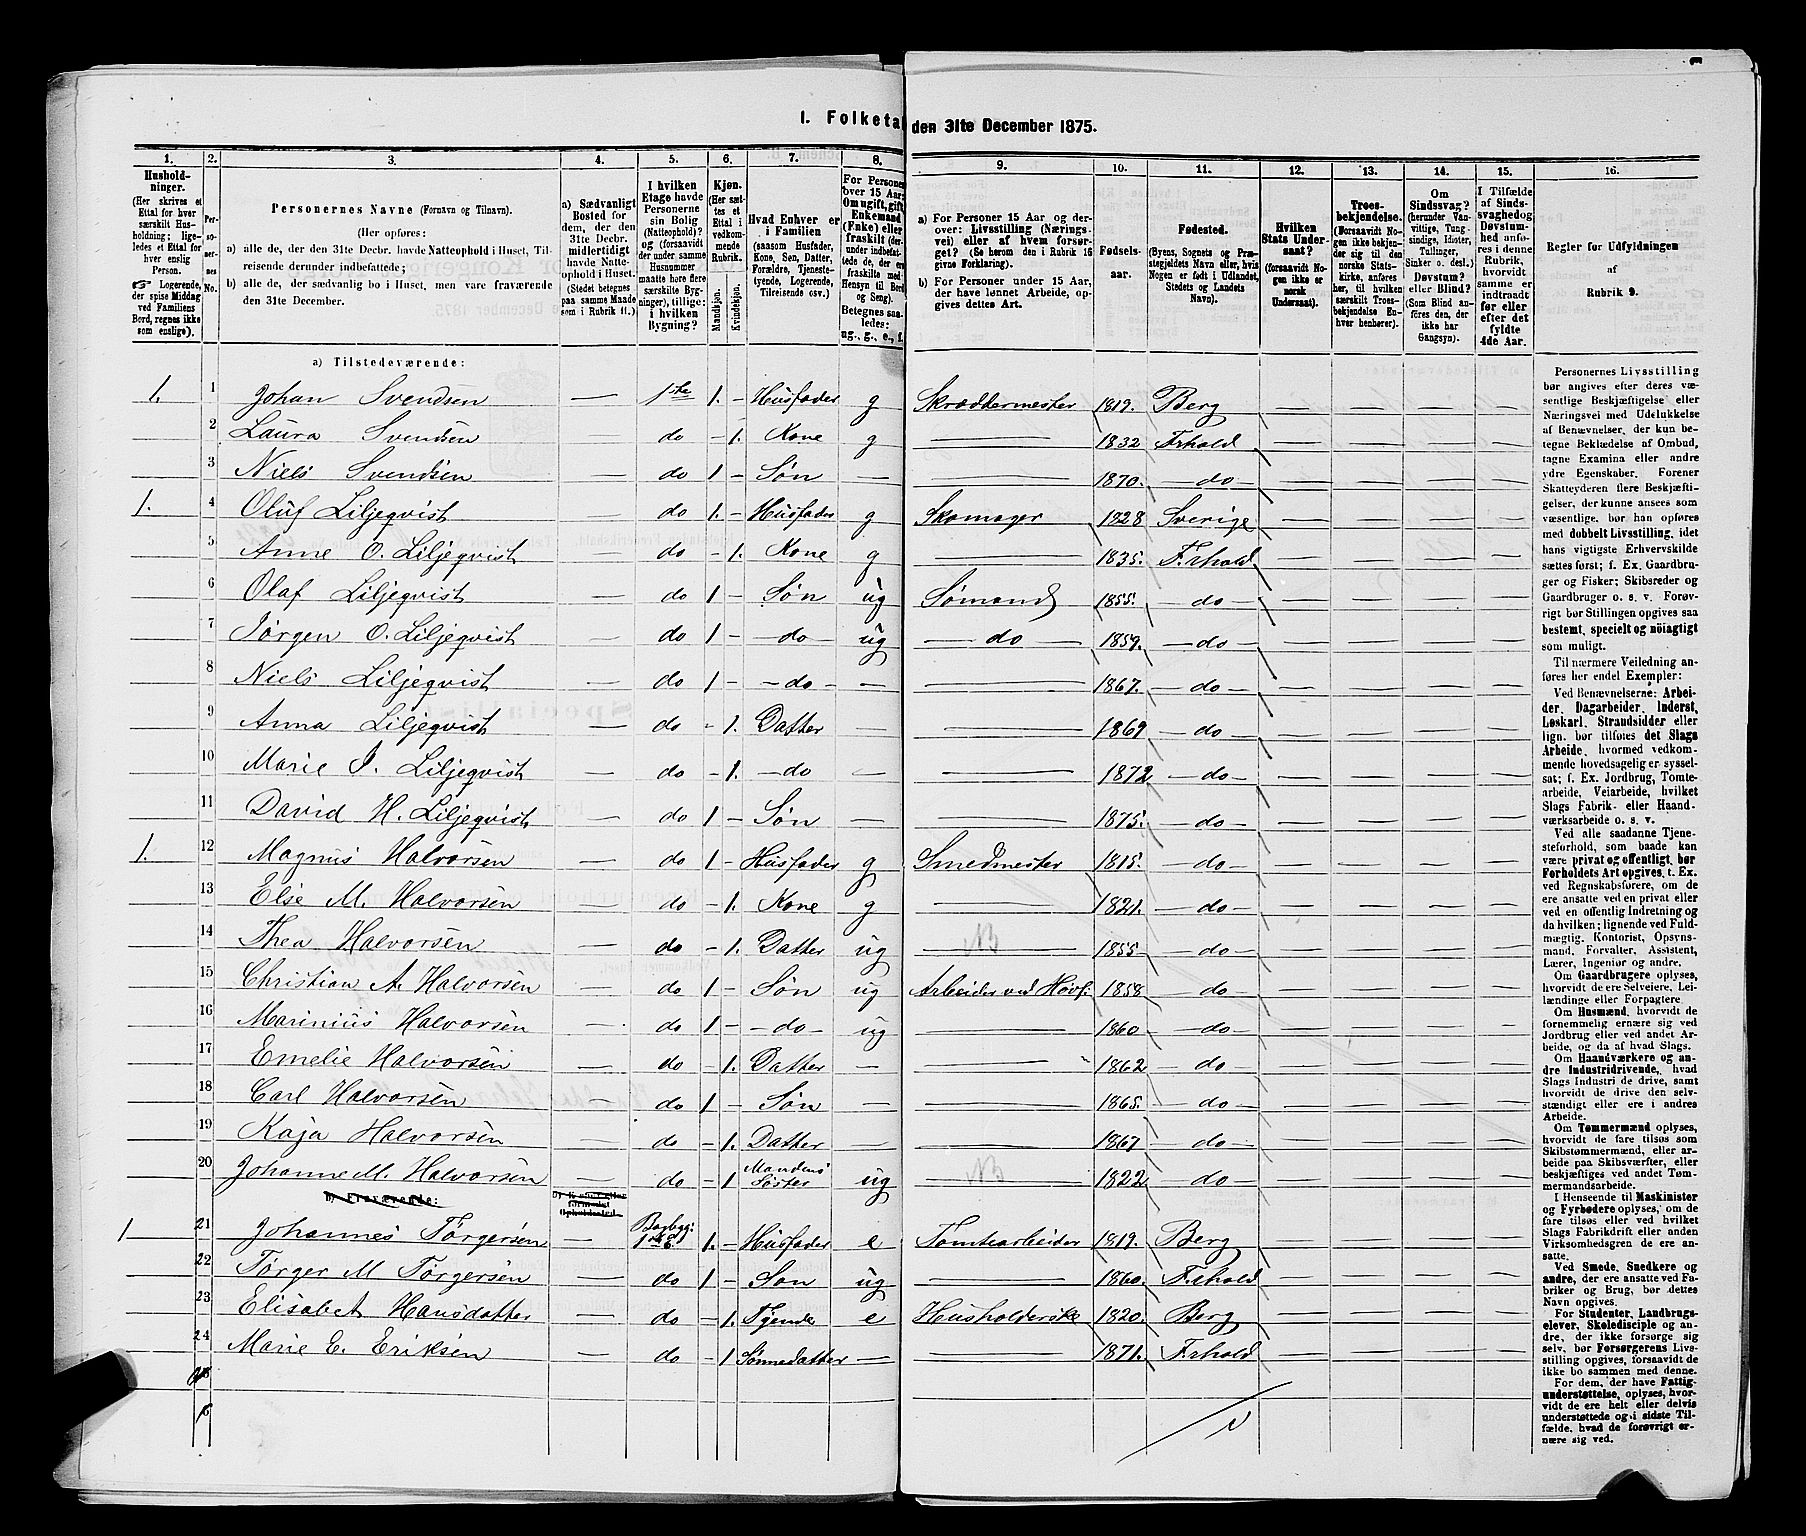 I. Folketal den 31te December 1875.
1. 2. 3. 4. 5. 6. 7. 8. 9. 10. 11. 12. 13. 14. 15. 16.
Hushold-
ninger.
(Her skrives et
Ettal for hver
særskilt Hus-
holdning; lige-
ledes et Ettal for
hver enslig
Person.
☞ Logerende,
der spise Middag
ved Familiens
Bord, regnes ikke
som enslige).
Per-
so-
ner-
nes
No.
Personernes Navne (Fornavn og Tilnavn).
(Her opføres:
a) alle de, der den 31te Decbr. havde Natteophold i Huset, Til-
reisende derunder indbefattede;
b) alle de, der sædvanlig bo i Huset, men vare fraværende
den 31te December.
a) Sædvanligt
Bosted for
dem, der den
31te Decbr.
midlertidigt
havde Natte-
ophold i Huset.
(Stedet betegnes
paa samme Maade
som i Rubrik 11.)
I hvilken
Etage havde
Personerne
sin Bolig
(Natteophold)?
og (forsaavidt
der under samme
Husnummer
maatte høre flere
særskilte Byg-
ninger), tillige:
i hvilken
Bygning?
Kjøn.
(Her sæt-
tes et
Ettal i
vedkom-
mende
Rubrik.
Mandkjøn.
Kvindekjøn.
Hvad Enhver er
i Familien
(saasom Husfader,
Kone, Søn, Datter,
Forældre, Tjeneste-
tyende, Logerende,
Tilreisende osv.)
For Personer
over 15 Aar:
Om ugift, gift,
Enkemand
(Enke) eller
fraskilt (der-
under indbefat-
tede, de er
fraskilte med
Hensyn til Bord
og Seng).
Betegnes saa-
ledes:
ug., g., e., f.
a) For Personer 15 Aar og der-
over: Livsstilling (Nærings-
vei) eller af hvem forsør-
get? (Se herom den i Rubrik 16
givne Forklaring).
b) For Personer under 15 Aar,
der have lønnet Arbeide, op-
gives dettes Art.
Fødsels-
aar.
Fødested.
(Byens, Sognets og Præ-
stegjeldets Navn eller, hvis
Nogen er født i Udlandet,
Stedets og Landets
Navn).
Hvilken
Stats Under-
saat?
(forsaavidt No-
gen ikke er
norsk
Undersaat).
Troes-
bekjendelse.
(Forsaavidt No-
gen ikke bekjen-
der sig til den
norske Stats-
kirke, anføres
her, til hvilken
særskilt Troes-
bekjendelse En-
hver henhører).
Om
Sindssvag?
(herunder Van-
vittige, Tung-
sindige, Idioter,
Tullinger,
Sinker o. desl.)
Døvstum?
eller Blind?
(Som Blind an-
føres den, der
ikke har
Gangsyn).
I Tilfælde
af Sinds-
svaghed og
Døvstum-
hed anfø-
res i denne
Rubrik,
hvorvidt
samme er
indtraadt
før eller
efter det
fyldte
4de Aar.
Regler for Udfyldningen
af
Rubrik 9.
a) Tilstedeværende:
1. 1 Johan Svendsen — 1ste 1. – Husfader g Skræddermester 1819. Berg — — — —
2 Laura Svendsen — do – 1. Kone g — 1832 Frhold — — — —
3 Niels Svendsen — do 1 – Søn — — 1870. — do — — — — —
1. 4 Oluf Liljeqvist — do 1. – Husfader g Skomager 1828 Sverige — — — —
5 Anne O. Liljeqvist — do – 1. Kone g — 1835. Frhold — — — —
6 Olaf Liljeqvist — do 1 – Søn ug Sømand 1855. — do — — — — —
7 Jørgen O. Liljeqvist — do 1 – — do — ug — do — 1859. — do — — — — —
8 Niels Liljeqvist — do 1 – — do — — — 1867. — do — — — — —
9 Anna Liljeqvist — do – 1. Datter — — 1869 — do — — — — —
10 Marie J. Liljeqvist — do – 1. — do — — — 1872 — do — — — — —
11 David H. Liljeqvist — do 1 – Søn — — 1875. — do — — — — —
1. 12 Magnus Halvorsen — do 1 – Husfader g Smedmester 1815. — do — — — — —
13 Else M. Halvorsen — do – 1. Kone g — 1821. — do — — — — —
14 Thea Halvorsen — do – 1. Datter ug NB 1855 — do — — — — —
15 Christian A. Halvorsen — do 1 – Søn ug Arbeider ved Høvl: 1858 — do — — — — —
16 Marinius Halvorsen — do 1 – — do — ug — 1860 — do — — — — —
17 Emelie Halvorsen — do – 1. Datter — — 1862 — do — — — — —
18 Carl Halvorsen — do 1 – Søn — — 1865. — do — — — — —
19 Kaja Halvorsen — do – 1. Datter — — 1867 — do — — — — —
20 Johanne M. Halvorsen — do – 1 Mandens Søster ug NB 1822 — do — — — — —
b) Fraværende:
b) Kjendt eller
formodet
Opholdssted.
1 21 Johannes Tørgersen — Bagbyg: 1ste E. 1. – Husfader e Tomtearbeider 1819. Berg — — — —
22 Tørger M Tørgersen — do 1 – Søn ug — 1860. Frhold — — — —
23 Elisabet Hansdatter — do – 1. Tjende e Husholderske 1820. Berg — — — —
24 Marie E. Eriksen — do – 1 Sønnedatter — — 1871. Frhold — — — —
Personernes Livsstilling
bør angives efter deres væ-
sentlige Beskjæftigelse eller
Næringsvei med Udelukkelse
af Benævnelser, der kun be-
tegne Beklædelse af Ombud,
tagne Examina eller andre
ydre Egenskaber. Forener
Skatteyderen flere Beskjæfti-
gelser, der kunne ansees som
væsentlige, bør han opføres
med dobbelt Livsstilling, idet
hans vigtigste Erhvervskilde
sættes først; f. Ex. Gaardbru-
ger og Fisker; Skibsreder og
Gaardbruger o. s. v. Forøv-
rigt bør Stillingen opgives saa
bestemt, specielt og nöiagtigt
som muligt.
Til nærmere Veiledning an-
føres her endel Exempler:
Ved Benævnelserne: Arbei-
der, Dagarbeider, Inderst,
Løskarl, Strandsidder eller
lign. bør tilføies det Slags
Arbeide, hvormed vedkom-
mende hovedsagelig er syssel-
sat; f. Ex. Jordbrug, Tomte-
arbeide, Veiarbeide, hvilket
Slags Fabrik- eller Haand-
værksarbeide o. s. v.
Ved alle saadanne Tjene-
steforhold, som baade kan
være privat og offentligt, bør
Forholdets Art opgives, t. Ex.
ved Regnskabsførere, om de
ere ansatte ved en privat eller
ved en offentlig Indretning og
da hvilken; lignende ved Fuld-
mægtig, Kontorist, Opsyns-
mand, Forvalter, Assistent,
Lærer, Ingeniør og andre.
Om Gaardbrugere oplyses,
hvorvidt de ere Selveiere, Lei-
lændinge eller Forpagtere.
Om Husmænd, hvorvidt de
fornemmelig ernære sig ved
Jordbrug eller ved andet Ar-
beide, og da af hvad Slags.
Om Haandværkere og an-
dre Industridrivende, hvad
Slags Industri de drive, samt
hvorvidt de drive den selv-
stændigt eller ere i andres
Arbeide.
Om Tømmermænd oplyses,
hvorvidt de fare tilsøs som
Skibstømmermænd, eller ar-
beide paa Skibsværfter, eller
beskjæftiges ved andet Tøm-
mermandsarbeide.
I Henseende til Maskinister
og Fyrbødere oplyses, om de
fare tilsøs eller ved hvilket
Slags Fabrikdrift eller anden
Virksomhedsgren de ere an-
satte.
Ved Smede, Snedkere og
andre, der ere ansatte ved Fa-
briker og Brug, bør dettes
Navn opgives.
For Studenter, Landbrugs-
elever, Skoledisciple og an-
dre, der ikke forsørge sig
selv, bør Forsørgerens Livs-
stilling opgives, forsaavidt de
ikke bo sammen med denne.
For dem, der have Fattig-
understøttelse, oplyses, hvor-
vidt de ere helt eller delvis
understøttede og i sidste Til-
fælde, hvad de forøvrigt er-
nære sig ved.